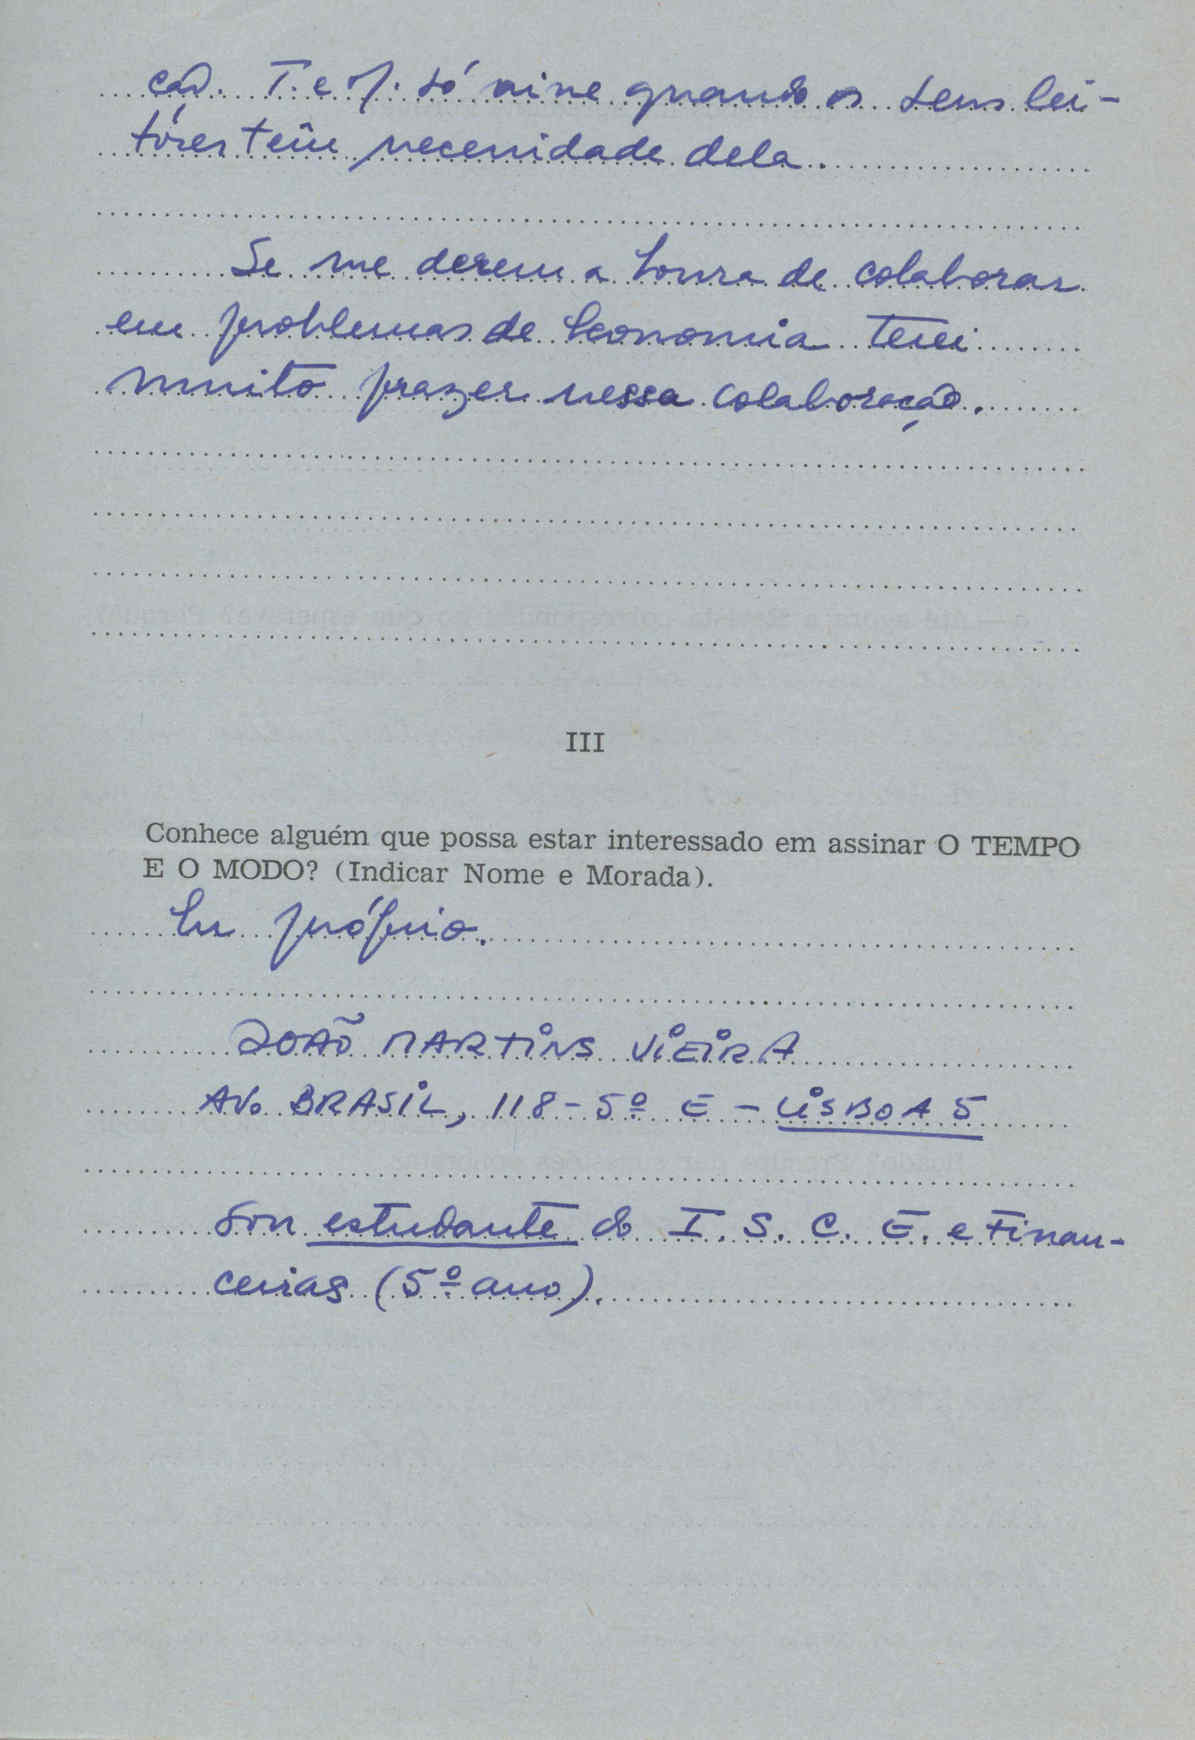 ção. T. e M. só vive quando os seus lei-
tôres têm necessidade dela.
Se me derem a honra de colaborar
em problemas de Economia terei
muito prazer nessa colaboração.
III
Conhece alguém que possa estar interessado em assinar O TEMPO
E O MODO? (Indicar Nome e Morada).
Eu próprio.
JOÃO MARTINS VIEIRA
AV. BRASIL, 118 - 5º E - LISBOA 5
Sou estudante do I. S. C. E. e Finan-
ceiras (5º ano).